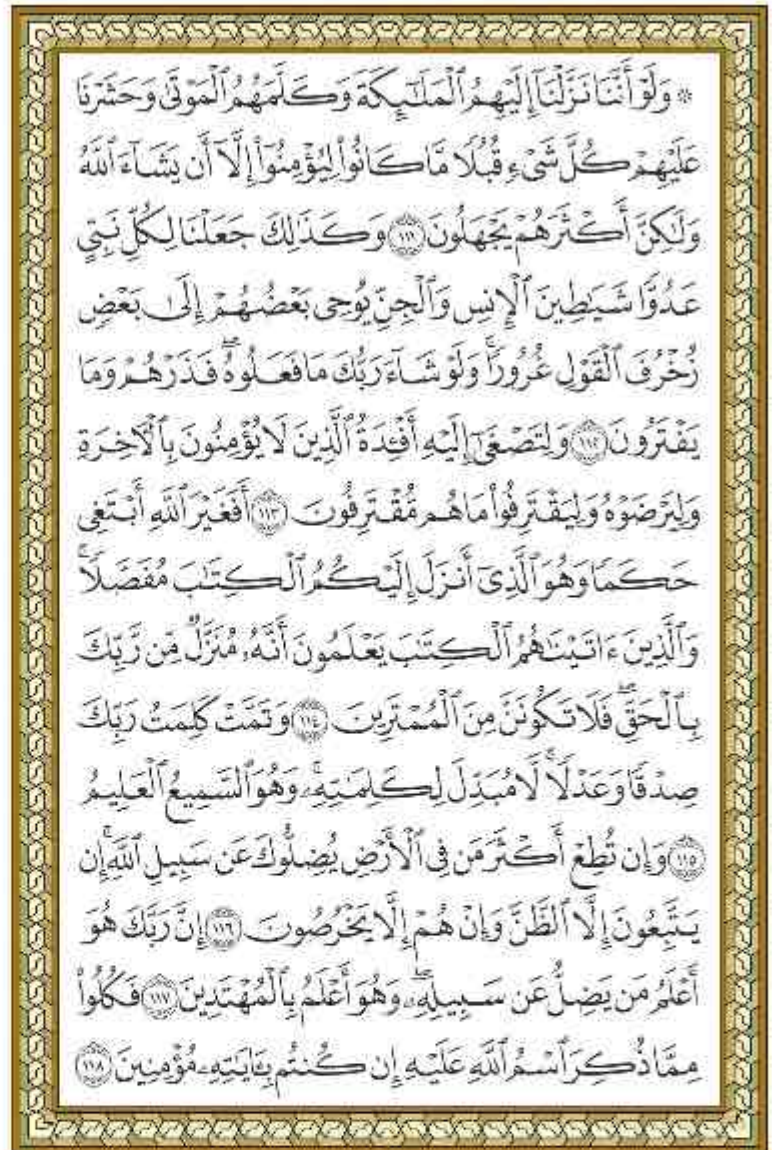 ۞ وَلَوْ أَنَّنَا نَزَّلْنَآ إِلَيْهِمُ ٱلْمَلَٰٓئِكَةَ وَكَلَّمَهُمُ ٱلْمَوْتَىٰ وَحَشَرْنَا
عَلَيْهِمْ كُلَّ شَىْءٍ قُبُلًا مَّا كَانُوا۟ لِيُؤْمِنُوٓا۟ إِلَّآ أَن يَشَآءَ ٱللَّهُ
وَلَٰكِنَّ أَكْثَرَهُمْ يَجْهَلُونَ ١١١ وَكَذَٰلِكَ جَعَلْنَا لِكُلِّ نَبِىٍّ
عَدُوًّا شَيَٰطِينَ ٱلْإِنسِ وَٱلْجِنِّ يُوحِى بَعْضُهُمْ إِلَىٰ بَعْضٍ
زُخْرُفَ ٱلْقَوْلِ غُرُورًا ۚ وَلَوْ شَآءَ رَبُّكَ مَا فَعَلُوهُ ۖ فَذَرْهُمْ وَمَا
يَفْتَرُونَ ١١٢ وَلِتَصْغَىٰٓ إِلَيْهِ أَفْـِٔدَةُ ٱلَّذِينَ لَا يُؤْمِنُونَ بِٱلْءَاخِرَةِ
وَلِيَرْضَوْهُ وَلِيَقْتَرِفُوا۟ مَا هُم مُّقْتَرِفُونَ ١١٣ أَفَغَيْرَ ٱللَّهِ أَبْتَغِى
حَكَمًا وَهُوَ ٱلَّذِىٓ أَنزَلَ إِلَيْكُمُ ٱلْكِتَٰبَ مُفَصَّلًا ۚ
وَٱلَّذِينَ ءَاتَيْنَٰهُمُ ٱلْكِتَٰبَ يَعْلَمُونَ أَنَّهُۥ مُنَزَّلٌ مِّن رَّبِّكَ
بِٱلْحَقِّ ۖ فَلَا تَكُونَنَّ مِنَ ٱلْمُمْتَرِينَ ١١٤ وَتَمَّتْ كَلِمَتُ رَبِّكَ
صِدْقًا وَعَدْلًا ۚ لَّا مُبَدِّلَ لِكَلِمَٰتِهِۦ ۚ وَهُوَ ٱلسَّمِيعُ ٱلْعَلِيمُ
١١٥ وَإِن تُطِعْ أَكْثَرَ مَن فِى ٱلْأَرْضِ يُضِلُّوكَ عَن سَبِيلِ ٱللَّهِ ۚ إِن
يَتَّبِعُونَ إِلَّا ٱلظَّنَّ وَإِنْ هُمْ إِلَّا يَخْرُصُونَ ١١٦ إِنَّ رَبَّكَ هُوَ
أَعْلَمُ مَن يَضِلُّ عَن سَبِيلِهِۦ ۖ وَهُوَ أَعْلَمُ بِٱلْمُهْتَدِينَ ١١٧ فَكُلُوا۟
مِمَّا ذُكِرَ ٱسْمُ ٱللَّهِ عَلَيْهِ إِن كُنتُم بِـَٔايَٰتِهِۦ مُؤْمِنِينَ ١١٨